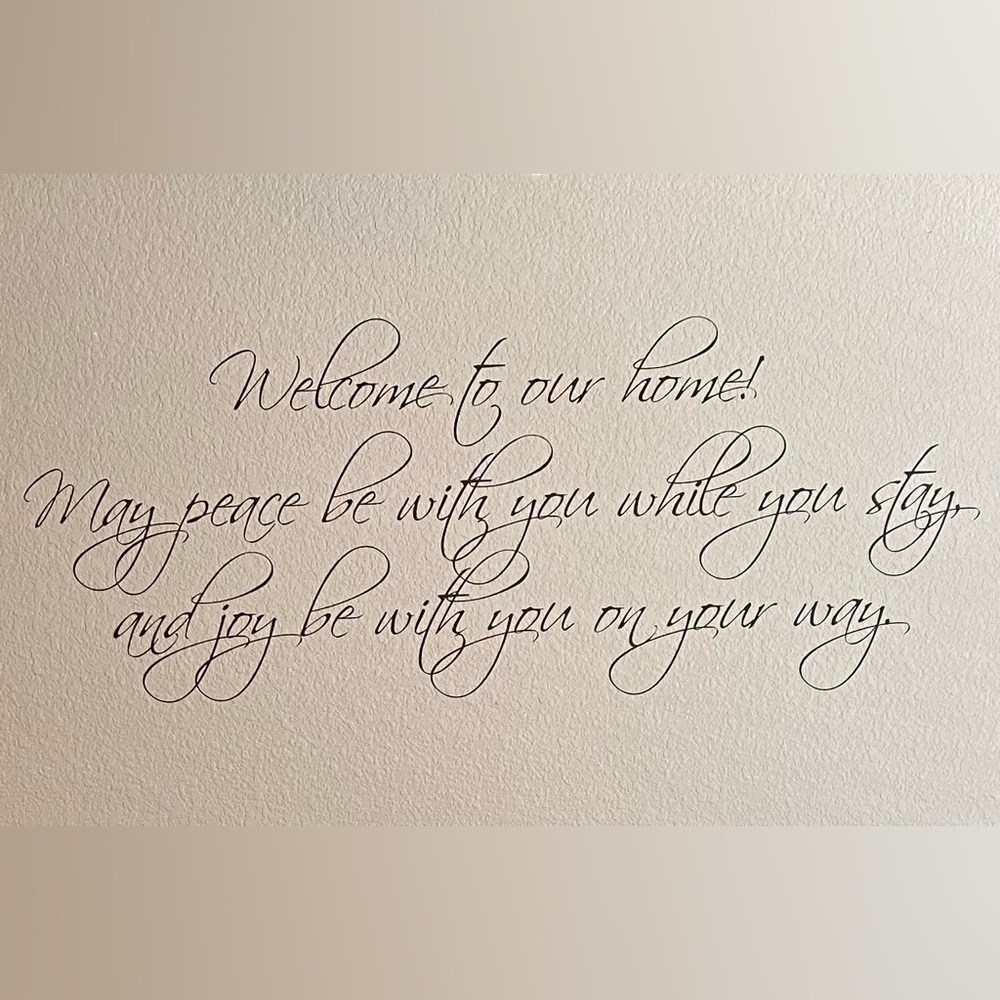 Welcome to our home!
May peace be with you while you stay,
and joy be with you on your way.